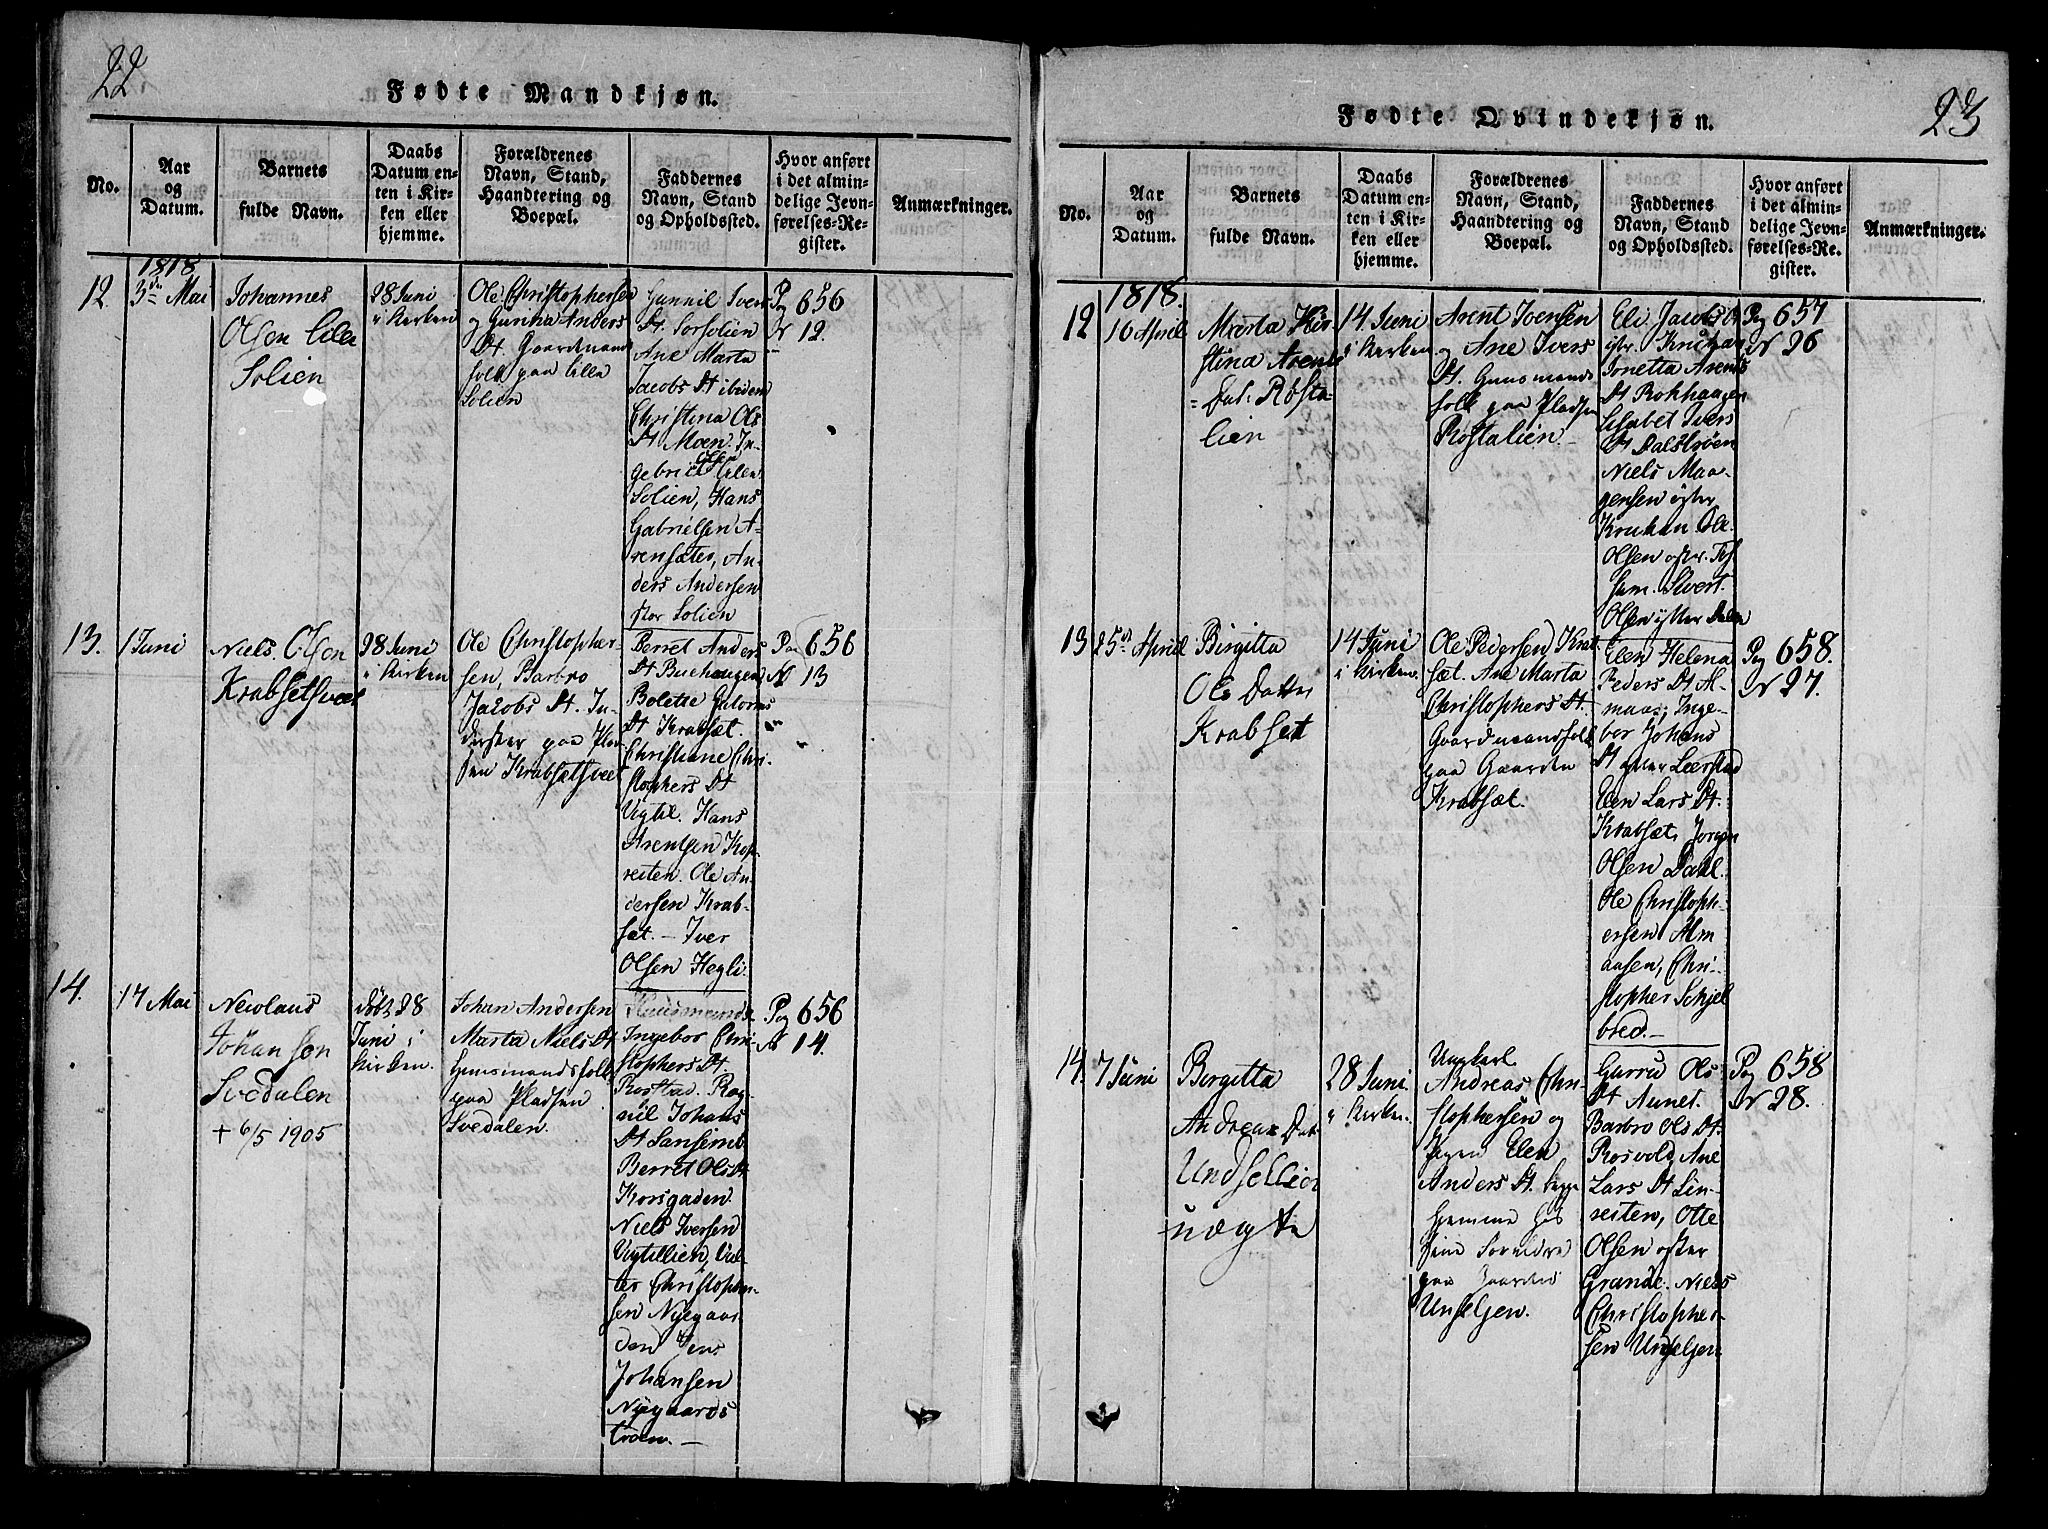 22
Fødte Mandkjøn.
No.
Aar
og
Datum.
Barnets
fulde Navn.
Daabs
Datum en-
ten i Kir-
ken eller
hjemme.
Forældrenes
Navn, Stand,
Haandtering og
Boepæl.
Faddernes
Navn, Stand
og Opholdssted.
Hvor anført
i det almin-
delige Jevn-
førelses-Re-
gister.
Anmærkninger.
1818
12.
3die Mai
Johannes
Olsen Lille
Solien
28 Juni
i Kirken
Ole Christophersen
og Gurina Anders
Dt. Gaardmands
folk paa Lille
Solien
Gunnil Ivers
Dt. Sorsolien
Ane Marta
Jacobs Dt ibidem
Christina Ols
Dt Moen In-
gebrict Olsen Lille
Solien, Hans
Gabrielsen A-
rensæter, An-
ders Andersen
stor Solien
Pag 656
Nr 12.
13.
1 Juni
Niels Olsen
Krabsetsvee
28 Juni
i Kirken
Ole Christopher-
sen, Barbro
Jacobs Dt. In-
derster paa Plad-
sen Krabsetsveet
Berret Anders
Dt Buchaugen
Bolette
Dt Krabsæt.
Christiane Chri-
stophers Dt
Vigtil. Hans
Arentsen Kop-
reiten. Ole An-
dersen Krab-
sæt. - Iver
Olsen Hegli.
Pag 656
N 13
14.
17 Mai
Nicolaus
Johansen
Svedalen
+ 6/5 1905
Døbt 28
Juni i
Kirken.
Johan Andersen
Marta Niels Dt
Huusmandsfolk
paa Pladsen
Svedalen.
Huusmands
Ingebor Chri-
stophers Dt.
Rostad. Rag-
nil Johans
Dt Sansemb
Berret Ols Dt
Korsgaden
Niels Iversen
Vigtillien,
Christopher-
sen Nyegaar-
den Jens
Johansen
Nygaards
troen. -
Pag 656
Nr 14.
23
Fødte Qvindekjøn.
No.
Aar
og
Datum.
Barnets
fulde Navn.
Daabs
Datum en-
ten i Kir-
ken eller
hjemme.
Forældrenes
Navn, Stand,
Haandtering og
Boepæl.
Faddernes
Navn, Stand
og Opholdssted.
Hvor anført
i det almin-
delige Jevn-
førelses-Re-
gister.
Anmærkninger.
1818.
12
16 April
Marta Kir-
stina Arents
Dat: Røsta-
lien
14 Juni
i Kirken
Arent Ivensen
og Ane Ivers
Dt. Huusmands
folk paa Pladsen
Rostalien -
Eli Jacobs Dt
Kruken
Jonetta Arents
Dt Rokhaugen
Lisabet Ivers
Dt Dalsbøen
Niels Maa-
gensen øster
Kruken Ole
Olsen øster
Sivert
Olsen ytter Dalen
Pag 657
Nr 26
13
25de April
Birgitta
Ole Datter
Krabset
14 Juni
i Kirken.
Ole Pedersen Krab-
sæt. Ane Marta
Christophers Dt.
Gaardmandsfolk
paa Gaarden
Krabsæt.
Elen Helena
Peders Dt Al-
maas, Inge-
bor Johans
Dt ytter Leerstad
Elen Lars Dt.
Krabsæt, Jørgen
Olsen Dahl.
Ole Christoph-
ersen Alm
aasen, Chri-
stopher Schjel
bred. -
Pag 658.
Nr 27.
14.
7 Juni
Birgitta
Andreæ Dat
Undsellien
uægte
28 Juni
i Kirken.
Ungkarl
Andreas Chri-
stophersen og
Pigen Elen
Anders Dt. begge
hjemme hos
sine Forældre
paa Gaarden
Unseljen.
Gurru Ols
Dt Aunet.
Barbro Ols Dt.
Rosvold, Ane
Lars Dt Lin-
reiten, Otte
Olsen øster
Grande. Niels
Christopher-
sen Undseljen
Pag 658
Nr 28.